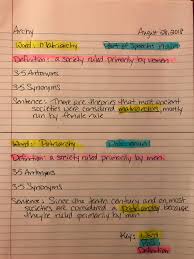 Archy August 28, 2018
Word: Matriarchy Part of Speech: noun
Definition: a society ruled primarily by women
3-5 Antonyms
3-5 Synonyms
Sentence: There are theories that most ancient
societies were considered matriarchies, mostly
run by female rule
Word: Patriarchy
Definition: a society ruled primarily by men
3-5 Antonyms
3-5 Synonyms
Sentence: Since the century and on, most
societies are considered a patriarchy, because
they're ruled primarily by men
Key: Word
Definition